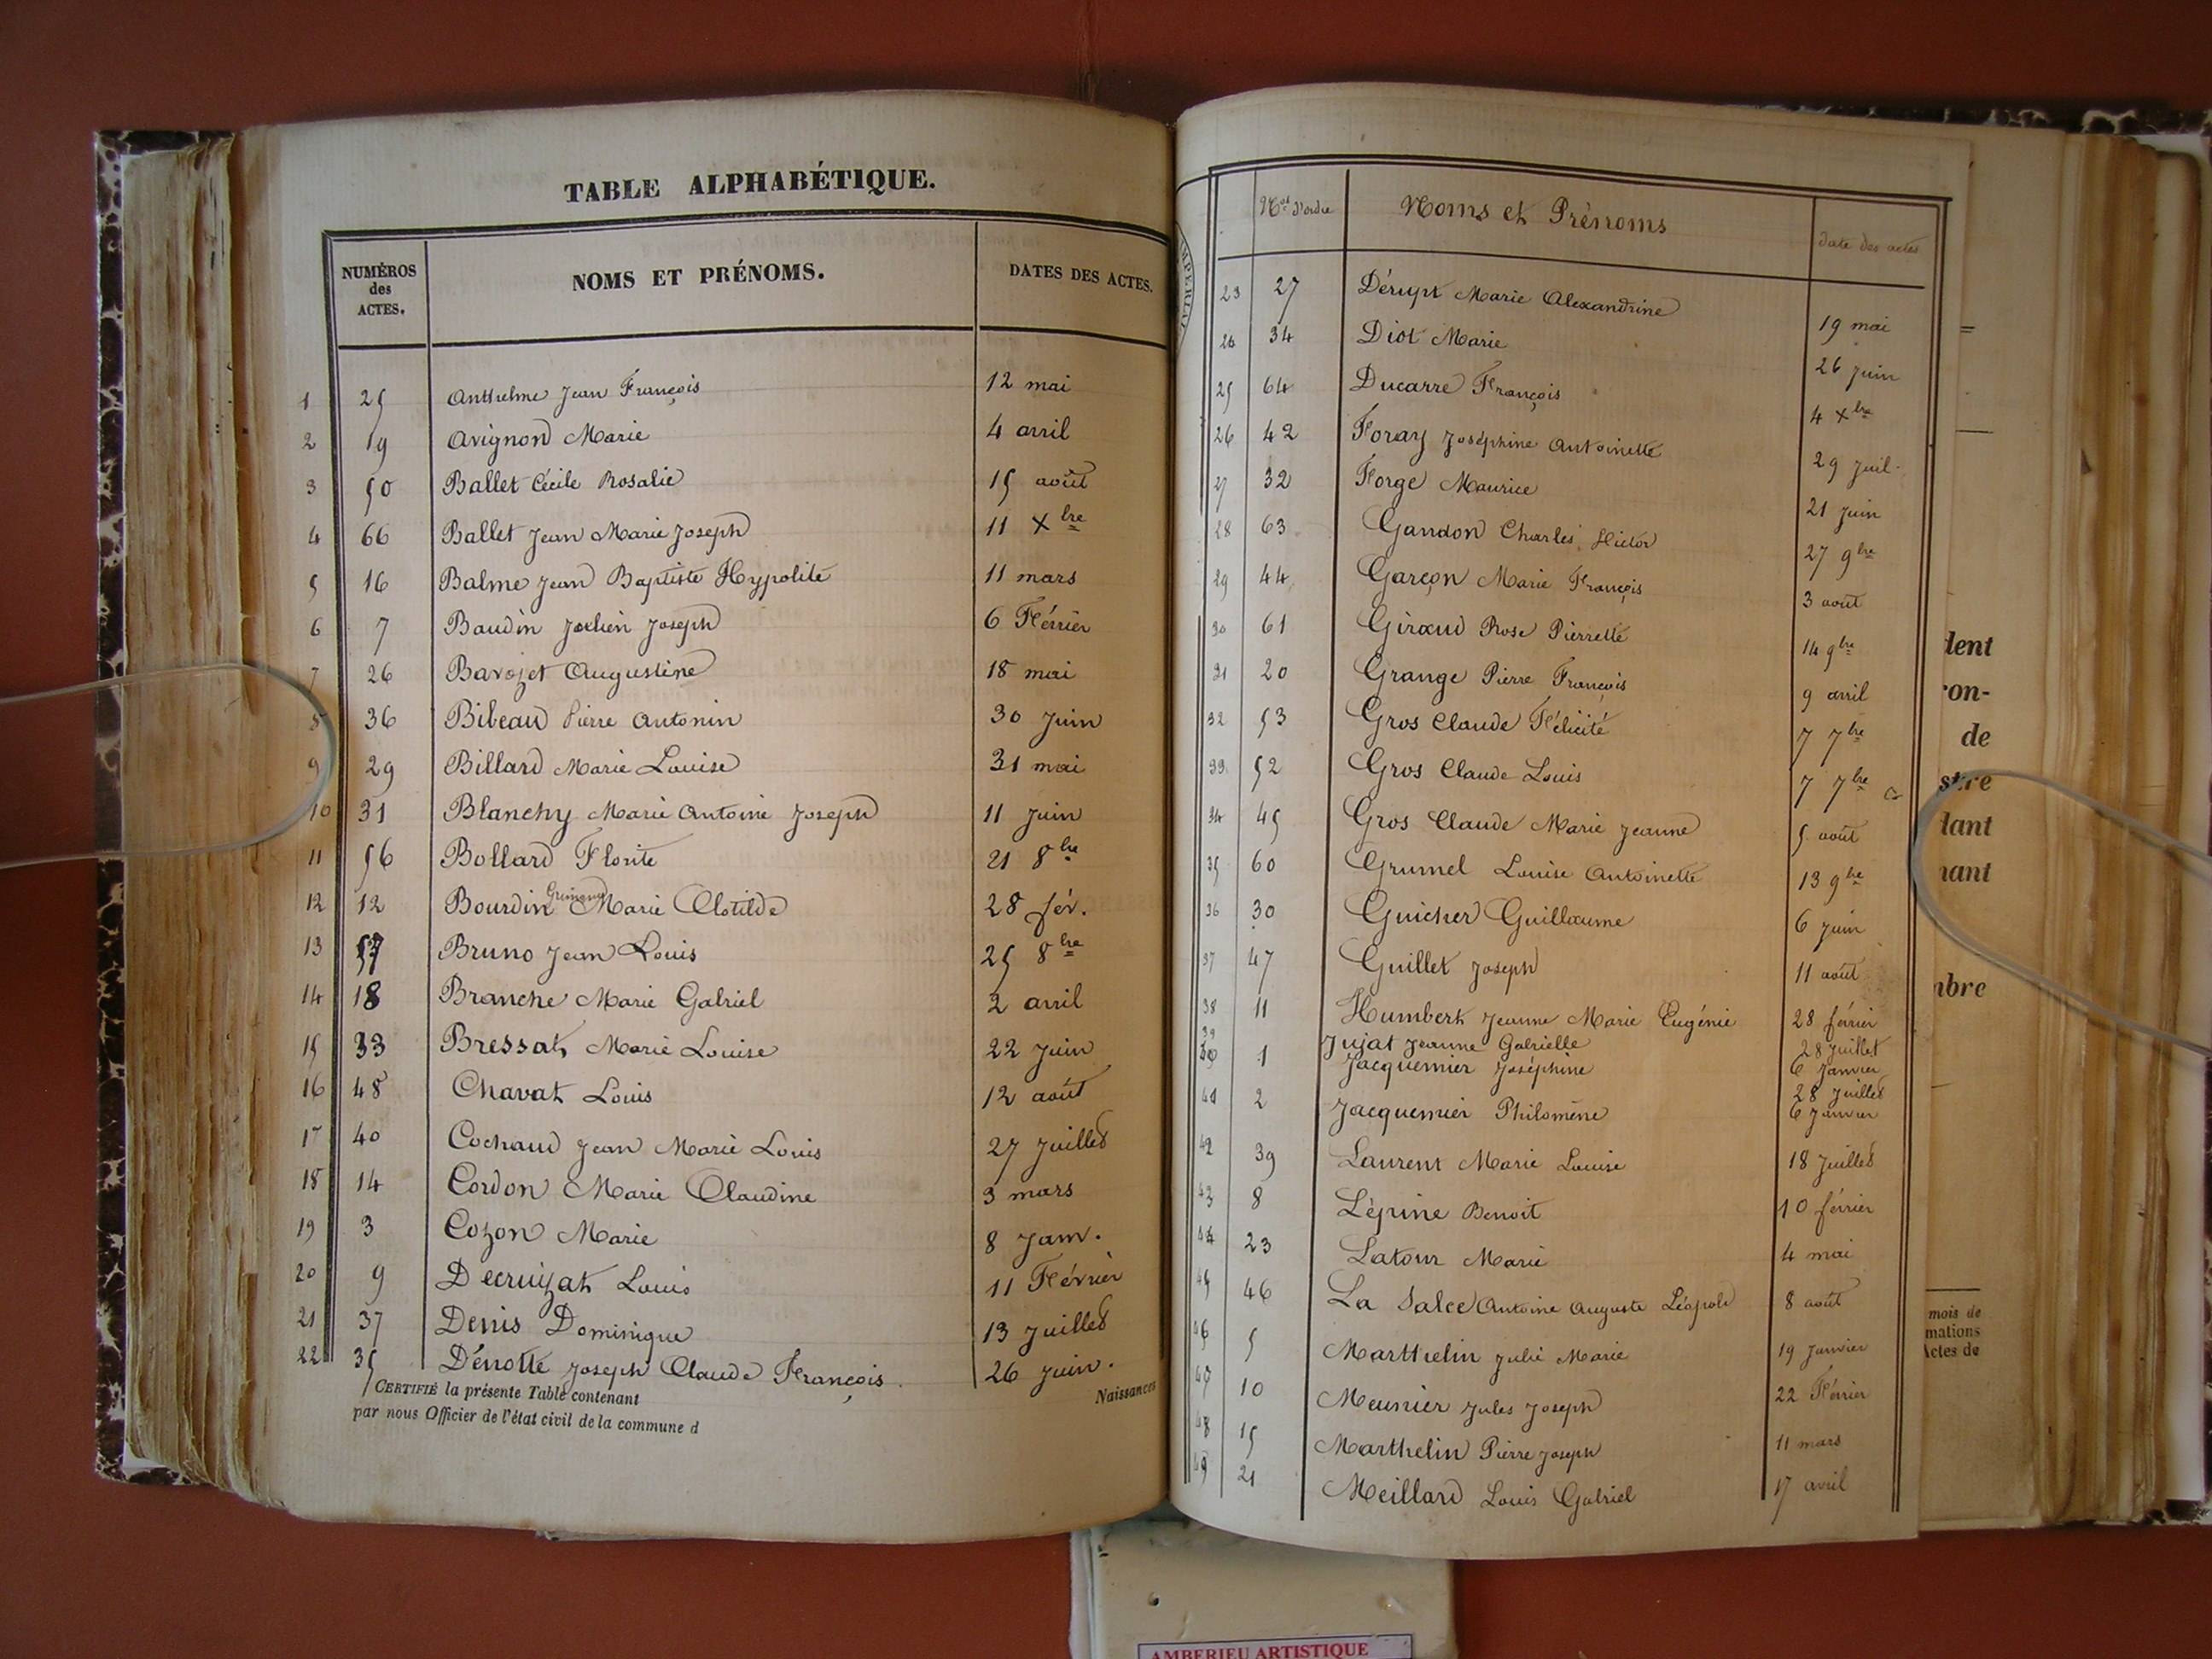 TABLE ALPHABÉTIQUE.
NUMÉROS des ACTES. NOMS ET PRÉNOMS. DATES DES ACTES.
1 25 Anthelme Jean François 12 mai
2 19 Avignon Marie 4 avril
3 50 Ballet Cécile Rosalie 15 août
4 66 Ballet Jean Marie Joseph 11 Xbre
5 16 Balme Jean Baptiste Hyppolite 11 mars
6 7 Baudin Joseph 6 Février
7 26 Bavozet Augustine 18 mai
8 36 Bibeau Pierre Antonin 30 Juin
9 29 Billard Marie Louise 31 mai
10 31 Blanchy Marie Antoine Joseph 11 Juin
11 56 Bollard Florite 21 8bre
12 12 Bourdin Marie Clotilde 28 fév.
13 57 Bruno Jean Louis 25 8bre
14 18 Branche Marie Gabriel 2 avril
15 33 Bressat Marie Louise 22 Juin
16 48 Chavat Louis 12 août
17 40 Cochaud Jean Marie Louis 27 Juillet
18 14 Cordon Marie Claudine 3 mars
19 3 Cozon Marie 8 Janv.
20 9 Decruizat Louis 11 Février
21 37 Denis Dominique 13 Juillet
22 35 Dénotte Joseph Claude François 26 Juin.
CERTIFIÉ la présente Table contenant Naissances
par nous Officier de l'état civil de la commune d
Nos d'ordre Noms et Prénoms date des actes
23 27 Dérupt Marie Alexandrine 19 mai
24 34 Diot Marie 26 Juin
25 64 Ducarre François 4 Xbre
26 42 Foray Joséphine Antoinette 29 Juil.
27 32 Forge Maurice 21 Juin
28 63 Gandon Charles Victor 27 9bre
29 44 Garçon Marie François 3 août
30 61 Giraud Rose Pierrette 14 9bre
31 20 Grange Pierre François 9 avril
32 53 Gros Claude Félicité 7 7bre
33 52 Gros Claude Louis 7 7bre
34 45 Gros Claude Marie Jeanne 5 août
35 60 Grumel Louise Antoinette 13 9bre
36 30 Guicher Guillaume 6 Juin
37 47 Guillet Joseph 11 août
38 11 Humbert Jeanne Marie Eugénie 28 février
39 Jujat Jeanne Gabrielle 28 Juillet
1 Jacquemier Joséphine 6 Janvier
28 Juillet
41 2 Jacquemier Philomène 6 Janvier
42 39 Laurent Marie Louise 18 Juillet
43 8 Lépine Benoit 10 février
44 23 Latour Marie 4 mai
45 46 La Salce Antoine Auguste Léopold 8 août
46 5 Marthelin Julie Marie 19 Janvier
47 10 Meunier Jules Joseph 22 Février
48 15 Marthelin Pierre Joseph 11 mars
49 21 Meillard Louis Gabriel 17 avril
dent
on-
de
stre
dant
nant
mbre
mois de
mations
Actes de
AMBERIEU ARTISTIQUE